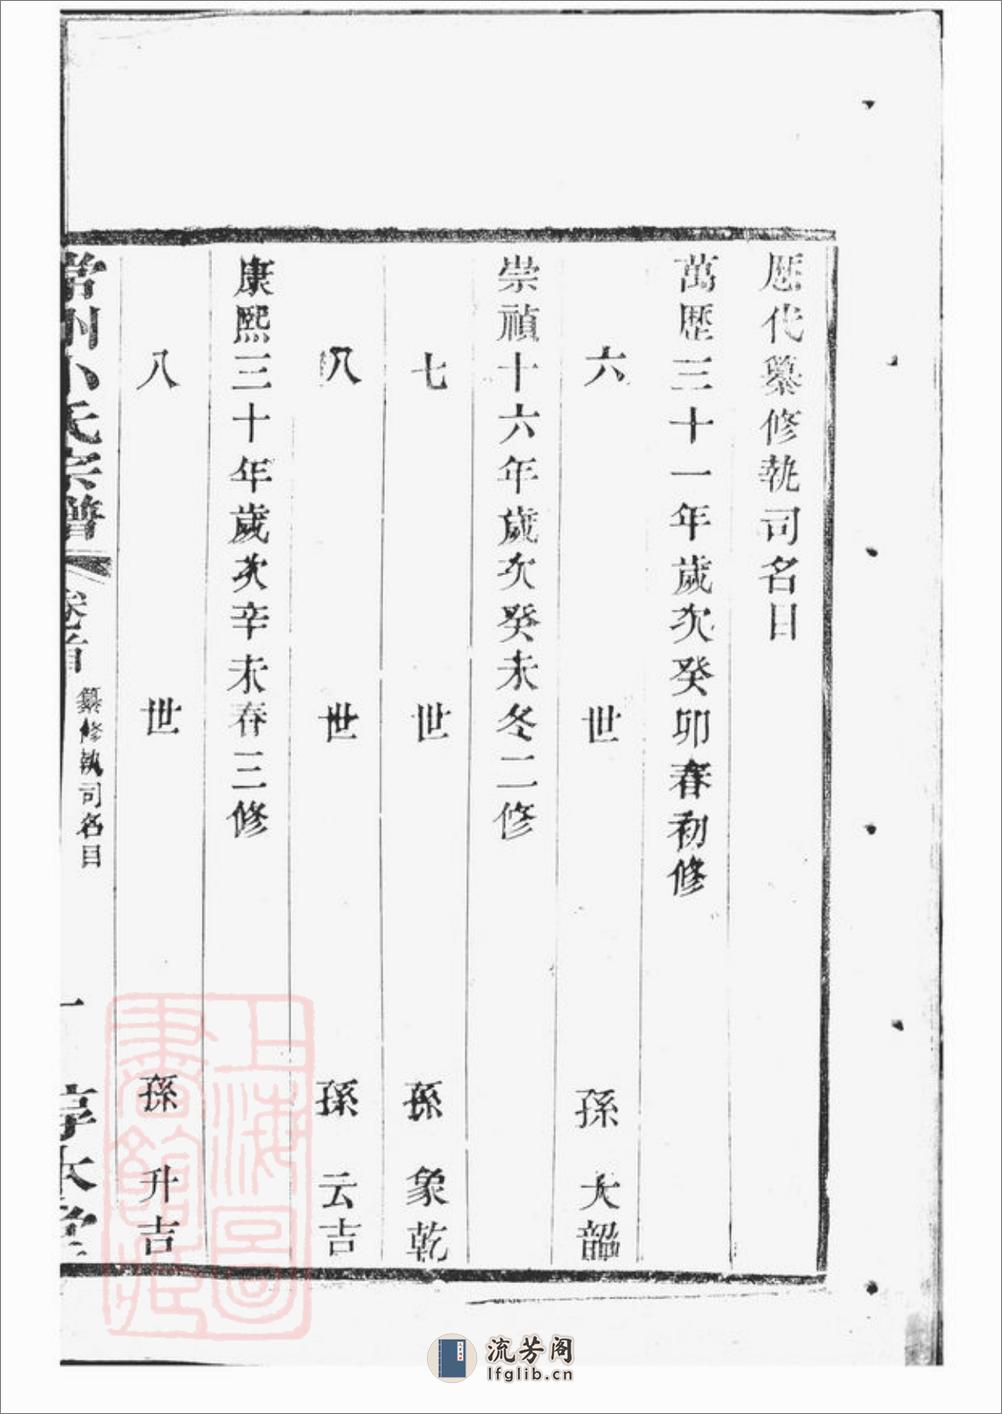 歷代纂修執司名目
萬歷三十一年歲次癸卯春初修
六世 孫 大韶
崇禎十六年歲次癸未冬二修
七世 孫 象乾
八世 孫 云吉
康熙三十年歲次辛未春三修
八世 孫 升吉
常州卜氏宗譜 卷首 纂修執司名目 一 享本堂
上海圖書館藏
流芳阁
lfglib.cn